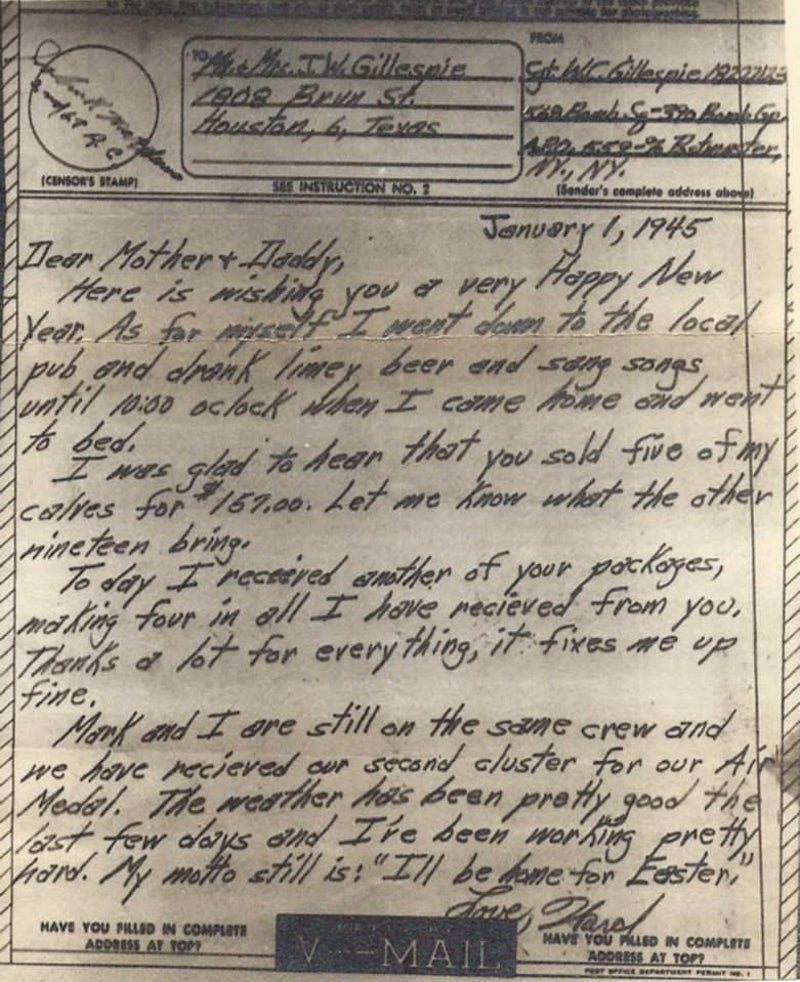 TO
Mr. & Mrs. J. W. Gillespie
1908 Brun St.
Houston, 6, Texas
FROM
Sgt. W.C. Gillespie 18222123
568 Bomb. Sq-390 Bomb Gp.
A.P.O. 559-% Postmaster,
N.Y., N.Y.
(CENSOR'S STAMP)
SEE INSTRUCTION NO. 2
(Sender's complete address above)
January 1, 1945
Dear Mother & Daddy,
Here is wishing you a very Happy New
Year. As for myself I went down to the local
pub and drank limey beer and sang songs
until 10:00 oclock when I came home and went
to bed.
I was glad to hear that you sold five of my
calves for $157.00. Let me know what the other
nineteen bring.
To day I received another of your packages,
making four in all I have recieved from you.
Thanks a lot for everything, it fixes me up
fine.
Mark and I are still on the same crew and
we have recieved our second cluster for our Air
Medal. The weather has been pretty good the
last few days and I've been working pretty
hard. My motto still is: "I'll be home for Easter."
Love,
HAVE YOU FILLED IN COMPLETE
ADDRESS AT TOP?
V···—MAIL
HAVE YOU FILLED IN COMPLETE
ADDRESS AT TOP?
POST OFFICE DEPARTMENT PERMIT NO. 1